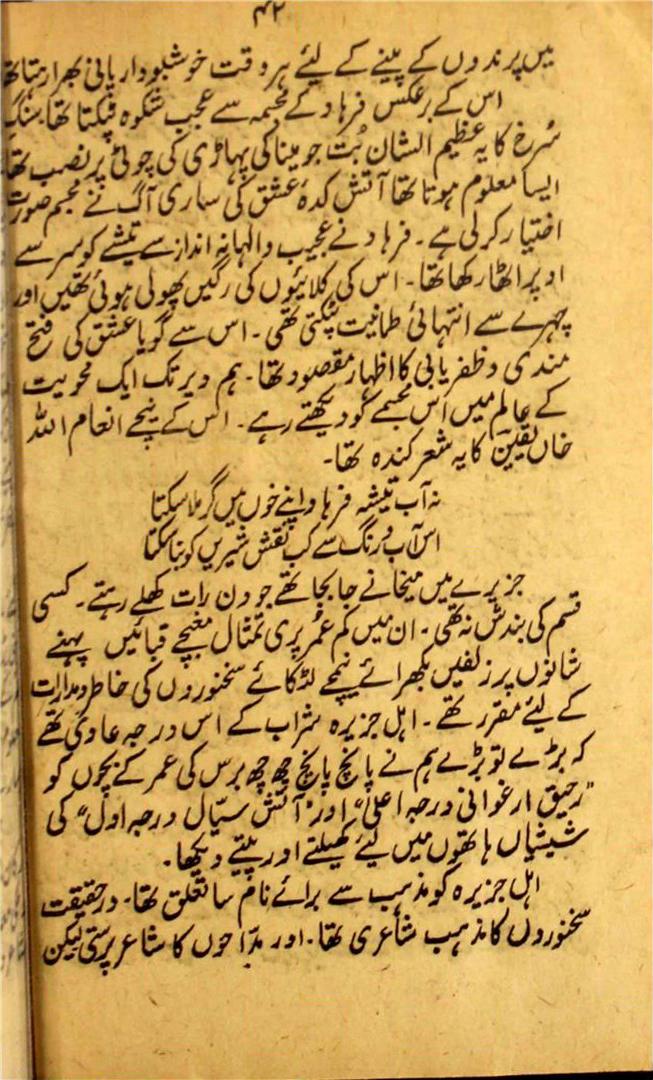 ۴۲
میں پرندوں کے پینے کے لیئے ہر وقت خوشبودار پانی بھرا رہتا تھا
اس کے برعکس فرہاد کے مجسمہ سے عجب شکوہ ٹپکتا تھا۔ سنگ
سُرخ کا یہ عظیم الشان بُت جو مینا کی پہاڑی کی چوٹی پر نصب تھا
ایسا معلوم ہوتا تھا آتش کدۂ عشق کی ساری آگ نے مجسم صورت
اختیار کر لی ہے۔ فرہاد نے عجیب والہانہ انداز سے تیشے کو سر سے
اوپر اٹھا رکھا تھا۔ اس کی کلائیوں کی رگیں پھولی ہوئی تھیں اور
چہرے سے انتہائی طمانیت ٹپکتی تھی۔ اس سے گویا عشق کی فتح
مندی و ظفریابی کا اظہار مقصود تھا۔ ہم دیر تک ایک محویت
کے عالم میں اس مجسمے کو دیکھتے رہے۔ اس کے نیچے انعام اللہ
خاں یقینؔ کا یہ شعر کندہ تھا۔
نہ آب تیشہ فرہاد اپنے خوں میں گر ملا سکتا
اس آب و رنگ سے کب نقش شیریں کو بنا سکتا
جزیرے میں میخانے جابجا تھے جو دن رات کھلے رہتے۔ کسی
قسم کی بندش نہ تھی۔ ان میں کم عمر پری تمثال مغبچے قبائیں پہنے
شانوں پر زلفیں بکھرائے نیمچے لٹکائے سخنوروں کی خاطر و مدارات
کے لیئے مقرر تھے۔ اہل جزیرہ شراب کے اس درجہ عادی تھے
کہ بڑے تو بڑے ہم نے پانچ پانچ چھ چھ برس کی عمر کے بچوں کو
”رحیق ارغوانی درجہ اعلیٰ“ اور ”آتش سیّال درجہ اول“ کی
شیشیاں ہاتھوں میں لیئے کھیلتے اور پیتے دیکھا۔
اہل جزیرہ کو مذہب سے برائے نام سا تعلق تھا۔ درحقیقت
سخنوروں کا مذہب شاعری تھا۔ اور مدّاحوں کا شاعر پرستی لیکن